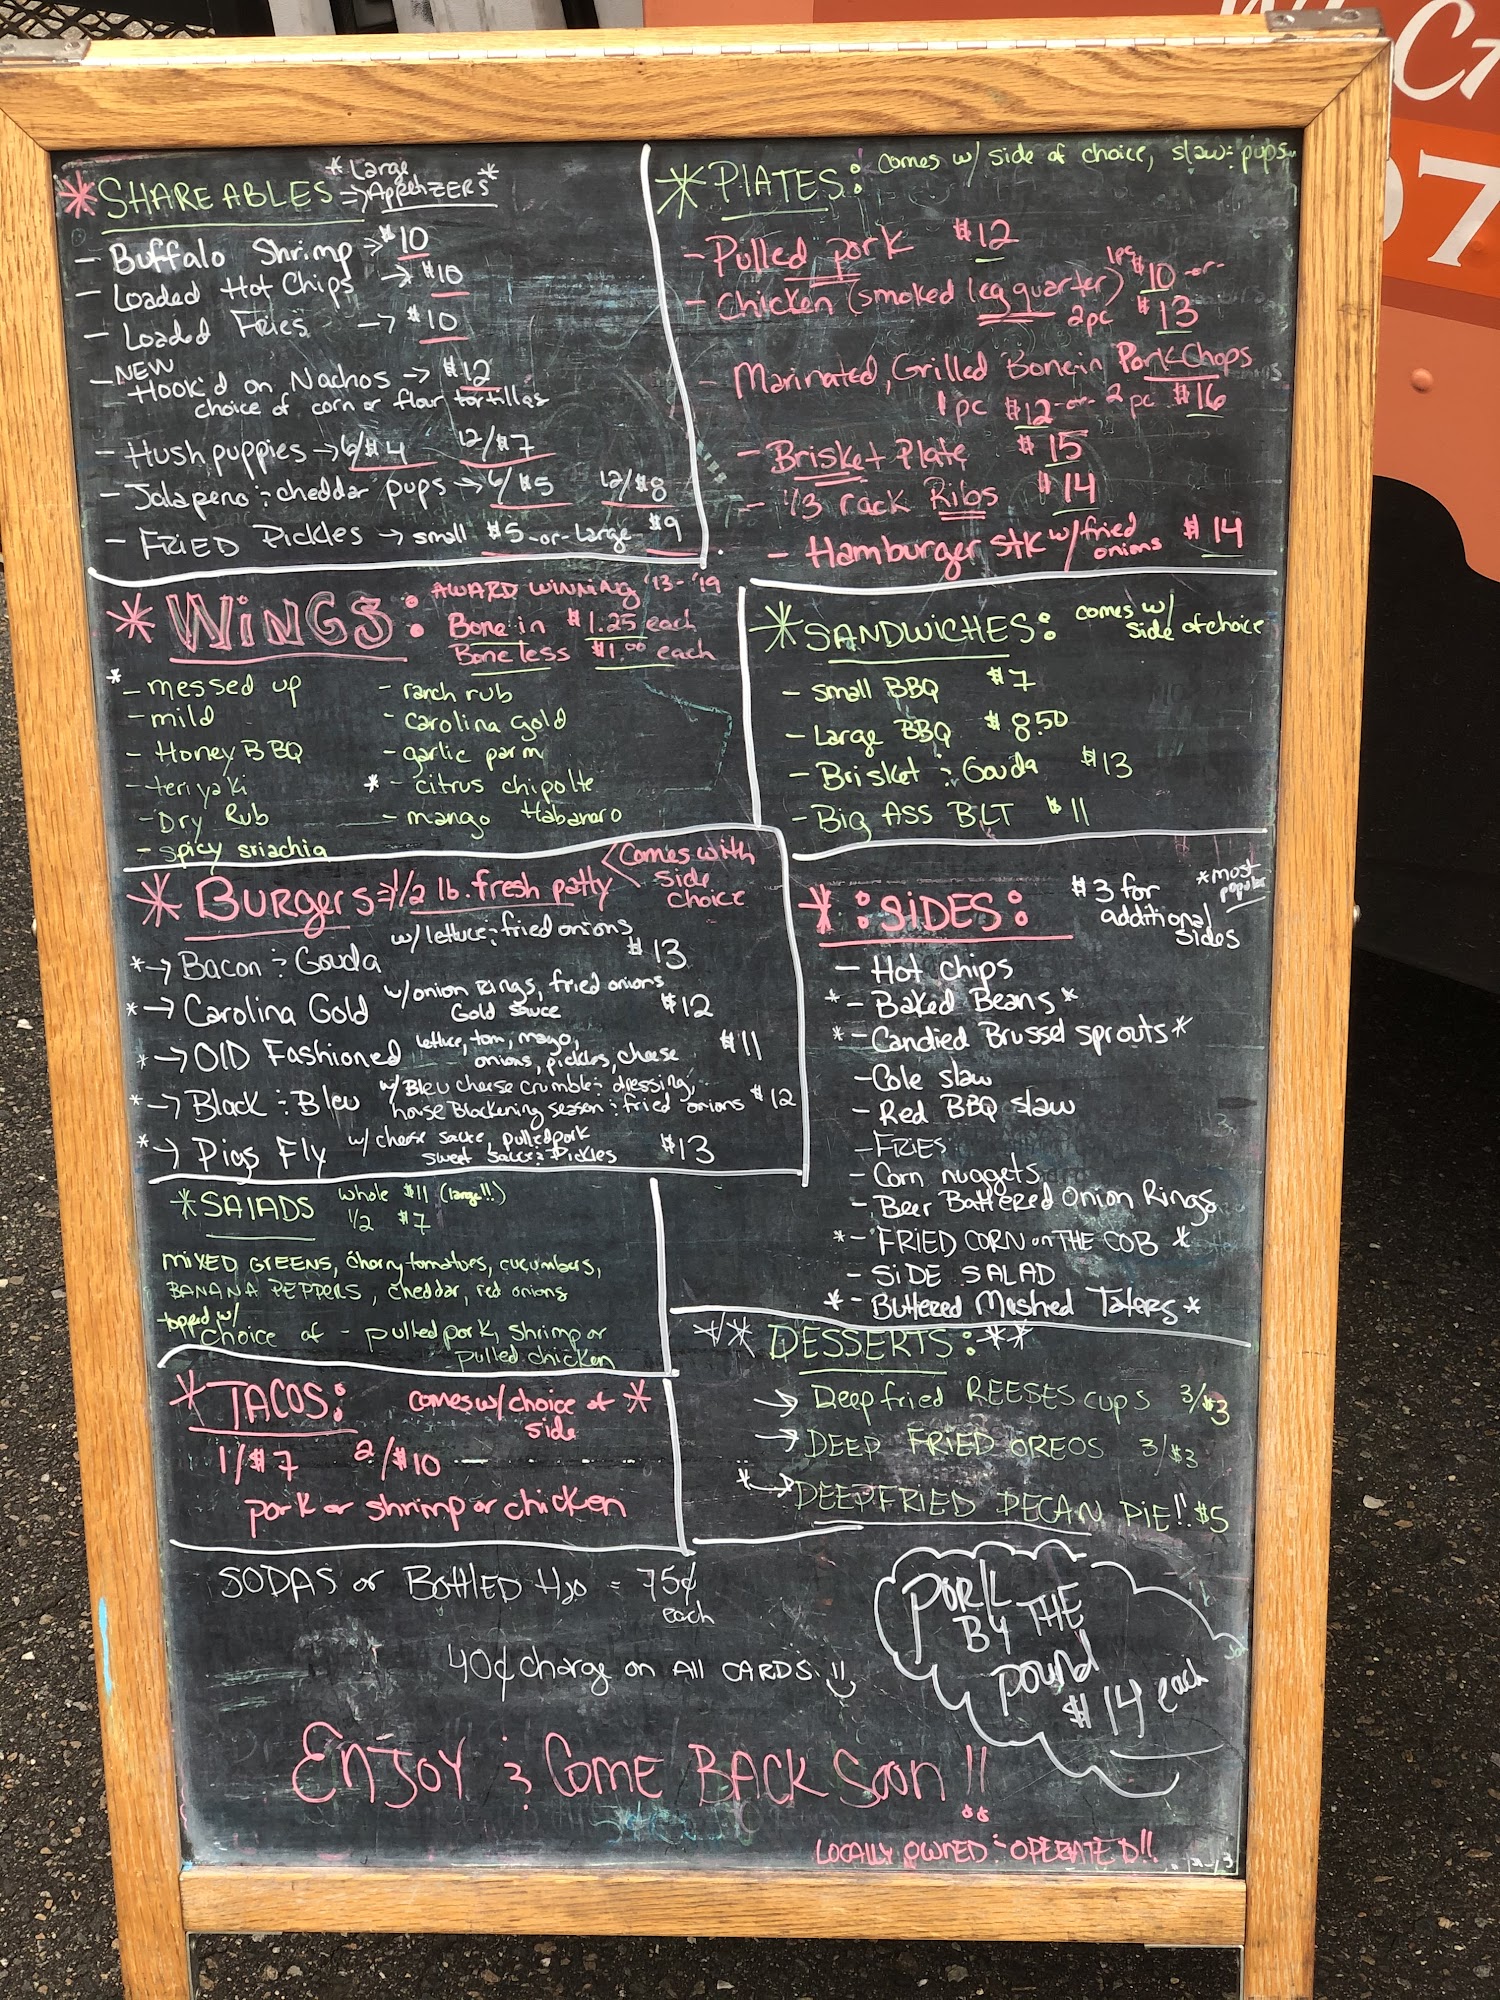 * SHAREABLES => * Large Appetizers *
- Buffalo Shrimp -> $10
- Loaded Hot Chips -> $10
- Loaded Fries -> $10
- NEW Hook'd on Nachos -> $12
choice of corn or flour tortillas
- Hushpuppies -> 6/$4 12/$7
- Jalapeno & cheddar pups -> 6/$5 12/$8
- FRIED Pickles -> small $5 -or- Large $9
* PLATES: comes w/ side of choice, slaw & pups
- Pulled pork $12
- Chicken (smoked leg quarter) 1pc $10 -or-
2pc $13
- Marinated, Grilled Bone in Pork Chops
1pc $12 -or- 2pc $16
- Brisket Plate $15
- 1/3 rack Ribs $14
- Hamburger STK w/ fried onions $14
* WiNGS: AWARD WINNING '13-'19
Bone in $1.25 each
Boneless $1.00 each
* - messed up
- mild
- Honey BBQ
- teriyaki
- Dry Rub
- spicy sriachia
- ranch rub
- carolina gold
- garlic parm
* - citrus chipolte
- mango Habanero
* SANDWICHES: comes w/ side of choice
- small BBQ $7
- Large BBQ $8.50
- Brisket & Gouda $13
- Big ASS BLT $11
* BURGERS => 1/2 lb. fresh patty < Comes with side choice
* -> Bacon & Gouda w/ lettuce & fried onions $13
* -> Carolina Gold w/ onion rings, fried onions Gold sauce $12
* -> Old Fashioned lettuce, tom, mayo, onions, pickles, cheese $11
* -> Black & Bleu w/ Bleu cheese crumble & dressing, house Blackening season & fried onions $12
* -> Pigs Fly w/ cheese sauce, pulled pork sweet sauce & Pickles $13
* :SiDES: $3 for additional sides * most popular
- Hot chips
* - Baked Beans *
* - Candied Brussel sprouts *
- Cole slaw
- Red BBQ slaw
- FRIES
- Corn nuggets
- Beer Battered Onion Rings
* - FRIED CORN on THE COB *
- SiDE SALAD
* - Buttered Mashed Taters *
* SALADS whole $11 (large!!)
1/2 $7
MIXED GREENS, cherry tomatoes, cucumbers,
BANANA PEPPERS, cheddar, red onions
topped w/ choice of - pulled pork, shrimp or
pulled chicken
* TACOS: comes w/ choice of side *
1/$7 2/$10
pork or shrimp or chicken
** DESSERTS: **
-> Deep fried REESES cups 3/$3
-> DEEP FRIED OREOS 3/$3
* -> DEEP FRIED PECAN PIE!! $5
SODAS or BOTTLED H2O = 75¢ each
40¢ charge on All CARDS!!
PORK BY THE pound $14 each
ENJOY & COME BACK SOON!!
LOCALLY OWNED & OPERATED!!
07